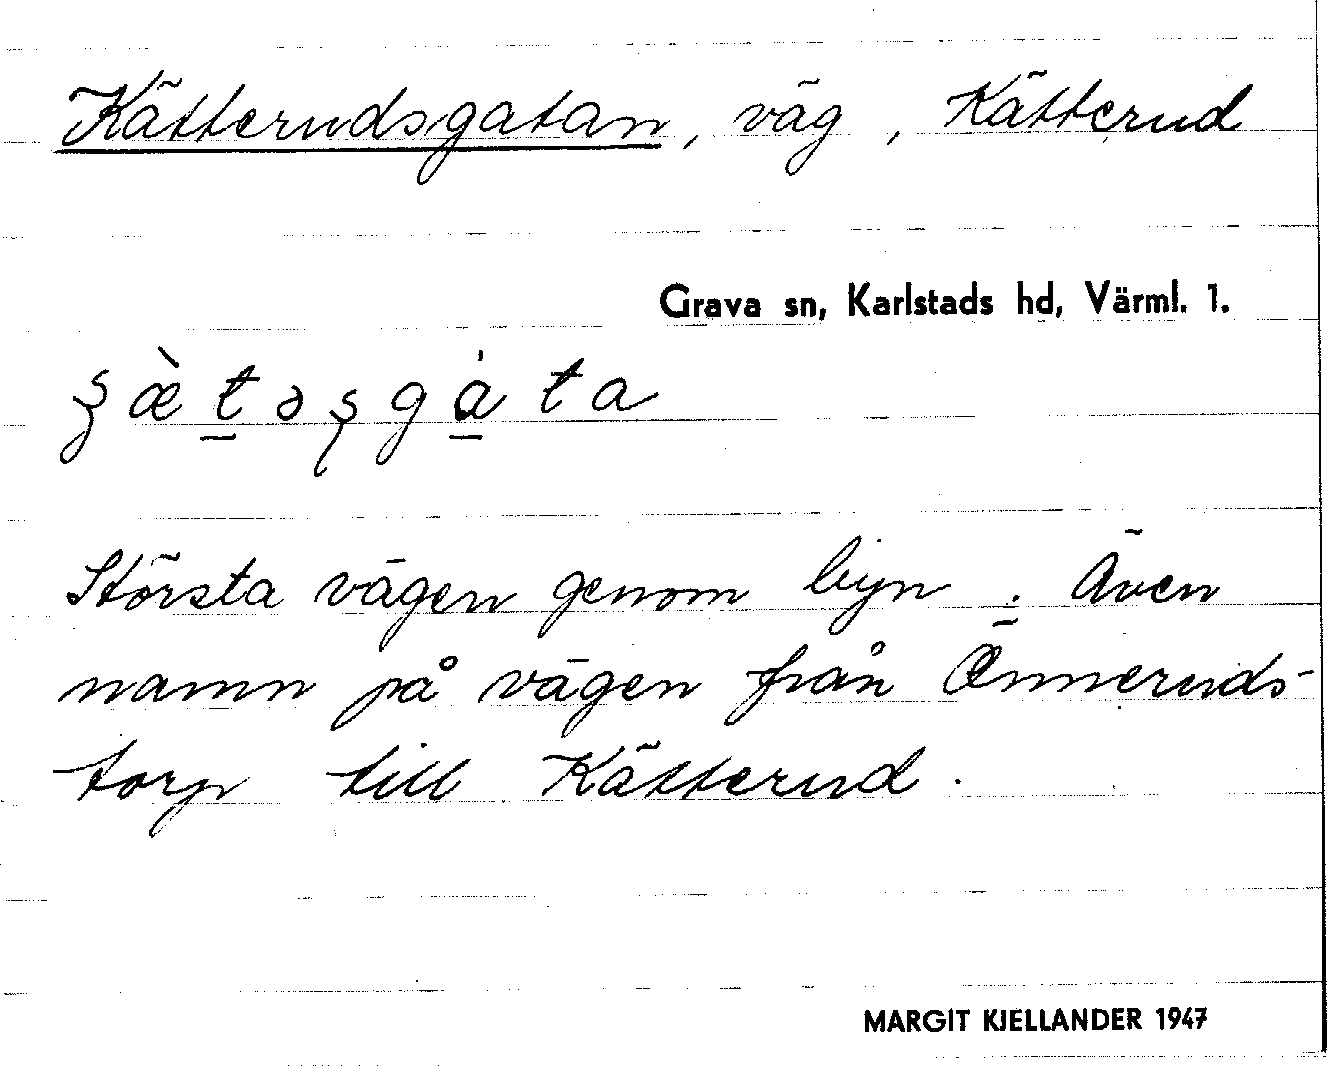 Kätterudsgatan, väg, Kätterud
Grava sn, Karlstads hd, Värml. 1.
Största vägen genom byn. Även
namn på vägen från Önneruds-
torp till Kätterud.
MARGIT KJELLANDER 1947